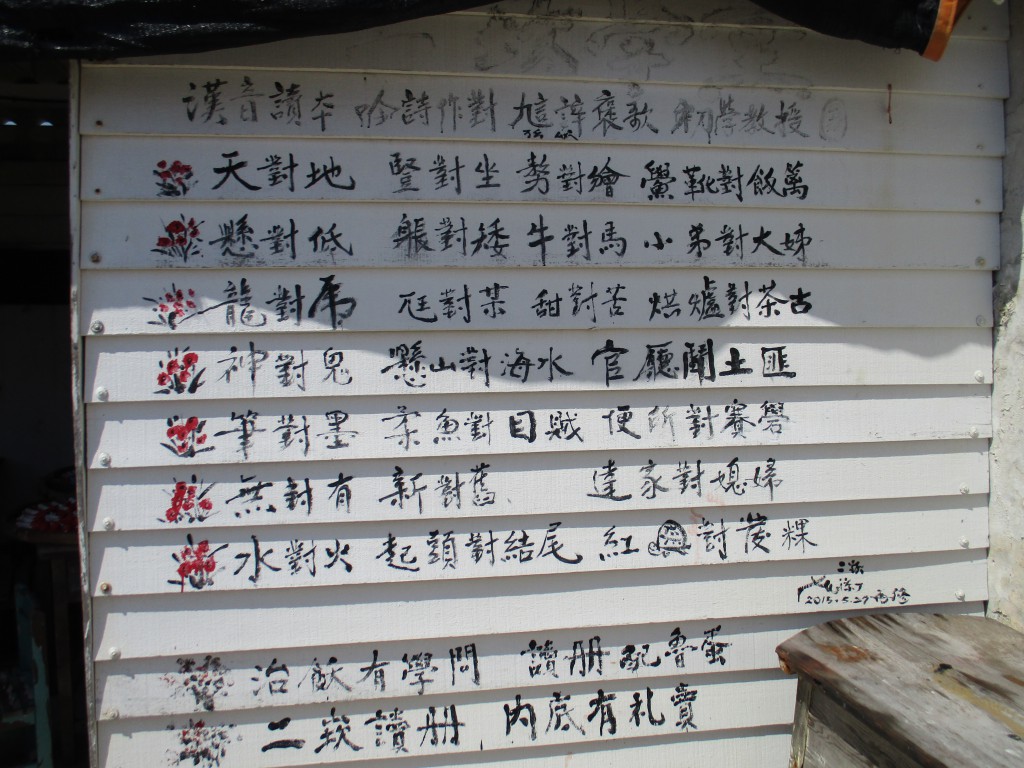 漢音讀本 唅詩作對 諄褒歌 初學教授
天對地 豎對坐 勢對繪 鱟靴對飯萬
懸對低 躼對矮 牛對馬 小弟對大姊
龍對虎 尪對某 甜對苦 烘爐對茶古
神對鬼 懸山對海水 官廳鬭土匪
筆對墨 柔魚對目賊 便所對賽礐
無對有 新對舊 達家對媳婦
水對火 起頭對結尾 紅 對菠粿
二崁
2015.5.27
治飲有學問 讀册配魯蛋
二崁讀册 內底有礼賣